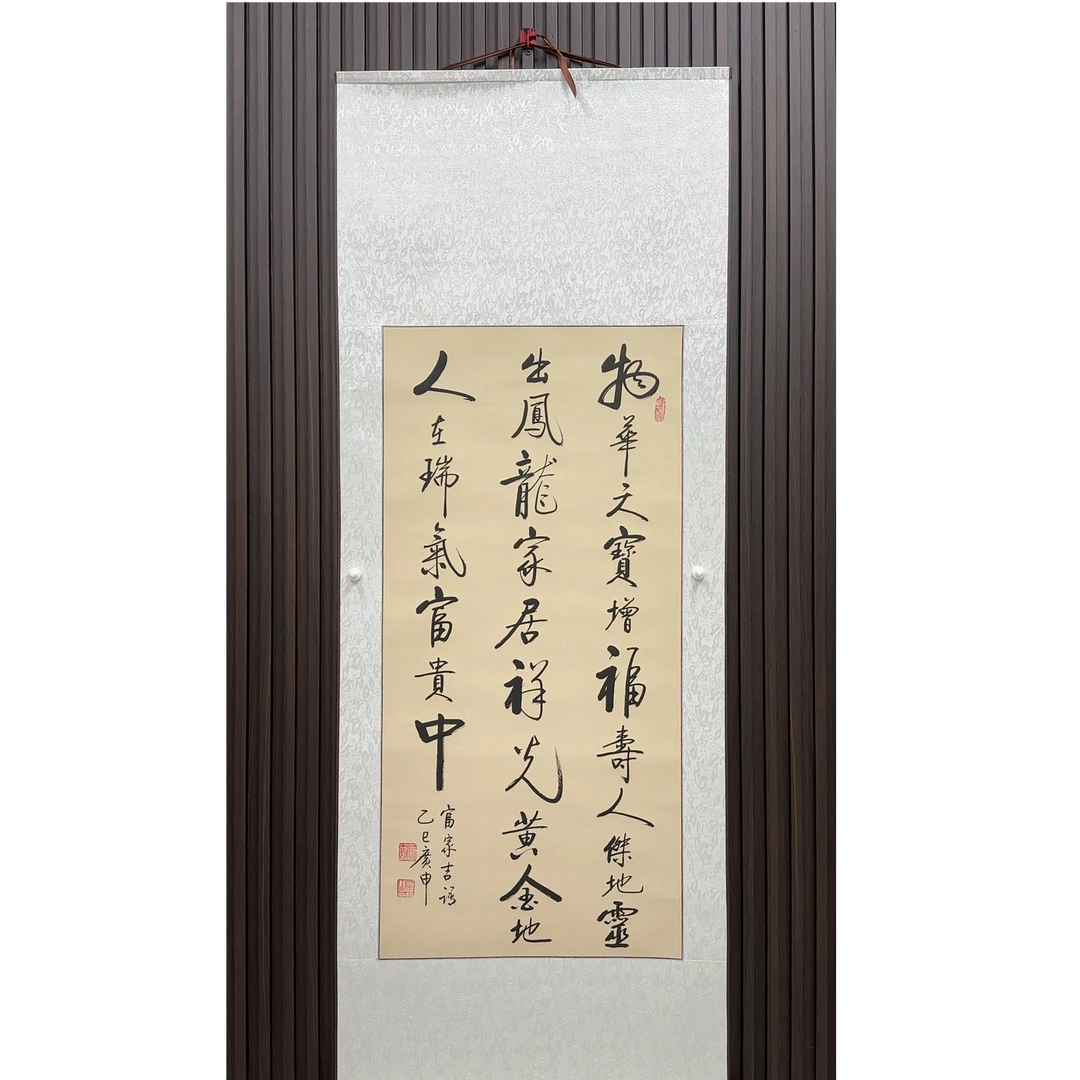 物華天寶增福壽人傑地靈
出鳳龍家居祥光黃金地
人在瑞氣富貴中
富家吉語
乙巳廣申